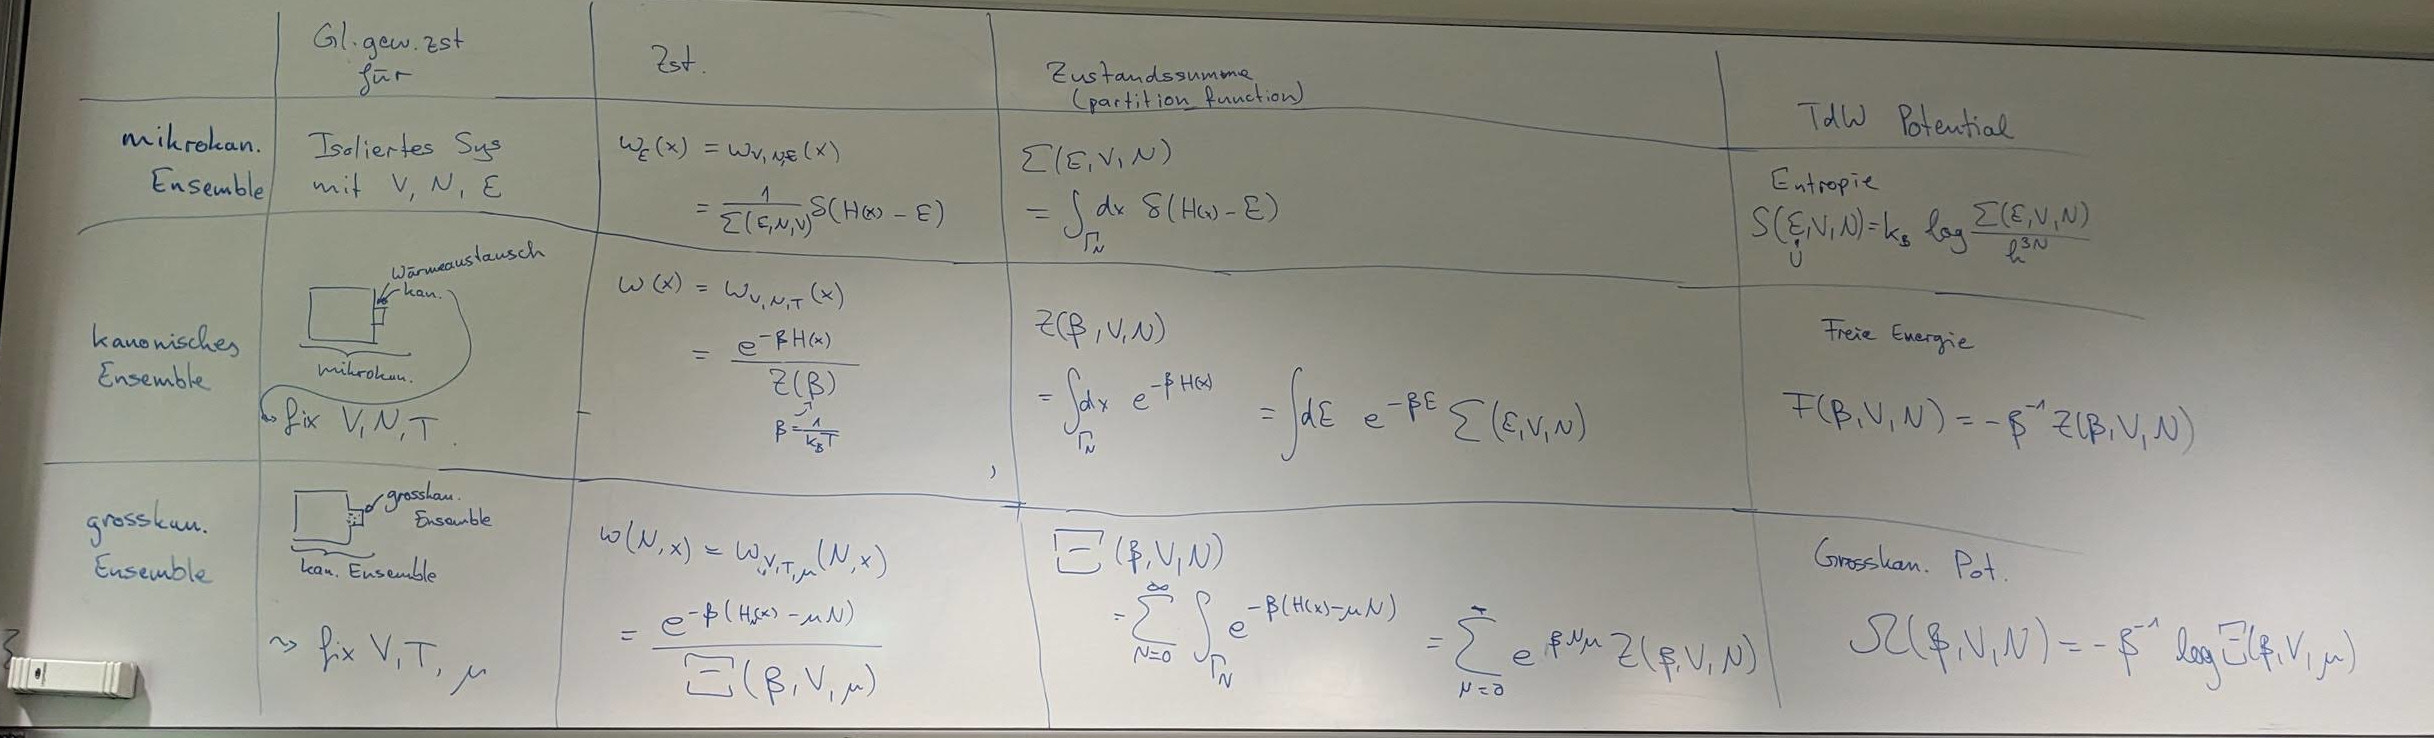 Gl.gew.zst
für
Zst.
Zustandssumme
(partition function)
TdW Potential
mikrokan.
Ensemble
Isoliertes Sys
mit V, N, E
ω_E(x) = ω_{V,N,E}(x)
= 1/Σ(E,N,V) δ(H(x) - E)
Σ(E,V,N)
= ∫_{Γ_N} dx δ(H(x) - E)
Entropie
S(E,V,N) = k_B log Σ(E,V,N)/h^{3N}
U
kanonisches
Ensemble
Wärmeaustausch
kan.
mikrokan.
↝ fix V, N, T.
ω(x) = ω_{V,N,T}(x)
= e^{-βH(x)}/Z(β)
β = 1/k_BT
Z(β,V,N)
= ∫_{Γ_N} dx e^{-βH(x)} = ∫dE e^{-βE} Σ(E,V,N)
Freie Energie
F(β,V,N) = -β^{-1} Z(β,V,N)
grosskan.
Ensemble
grosskan.
Ensemble
kan. Ensemble
↝ fix V, T, μ
ω(N,x) = ω_{V,T,μ}(N,x)
= e^{-β(H_N(x) - μN)}/Ξ(β,V,μ)
Ξ(β,V,N)
= Σ_{N=0}^{∞} ∫_{Γ_N} e^{-β(H(x)-μN)} = Σ_{N=0} e^{βNμ} Z(β,V,N)
Grosskan. Pot.
Ω(β,V,N) = -β^{-1} log Ξ(β,V,μ)